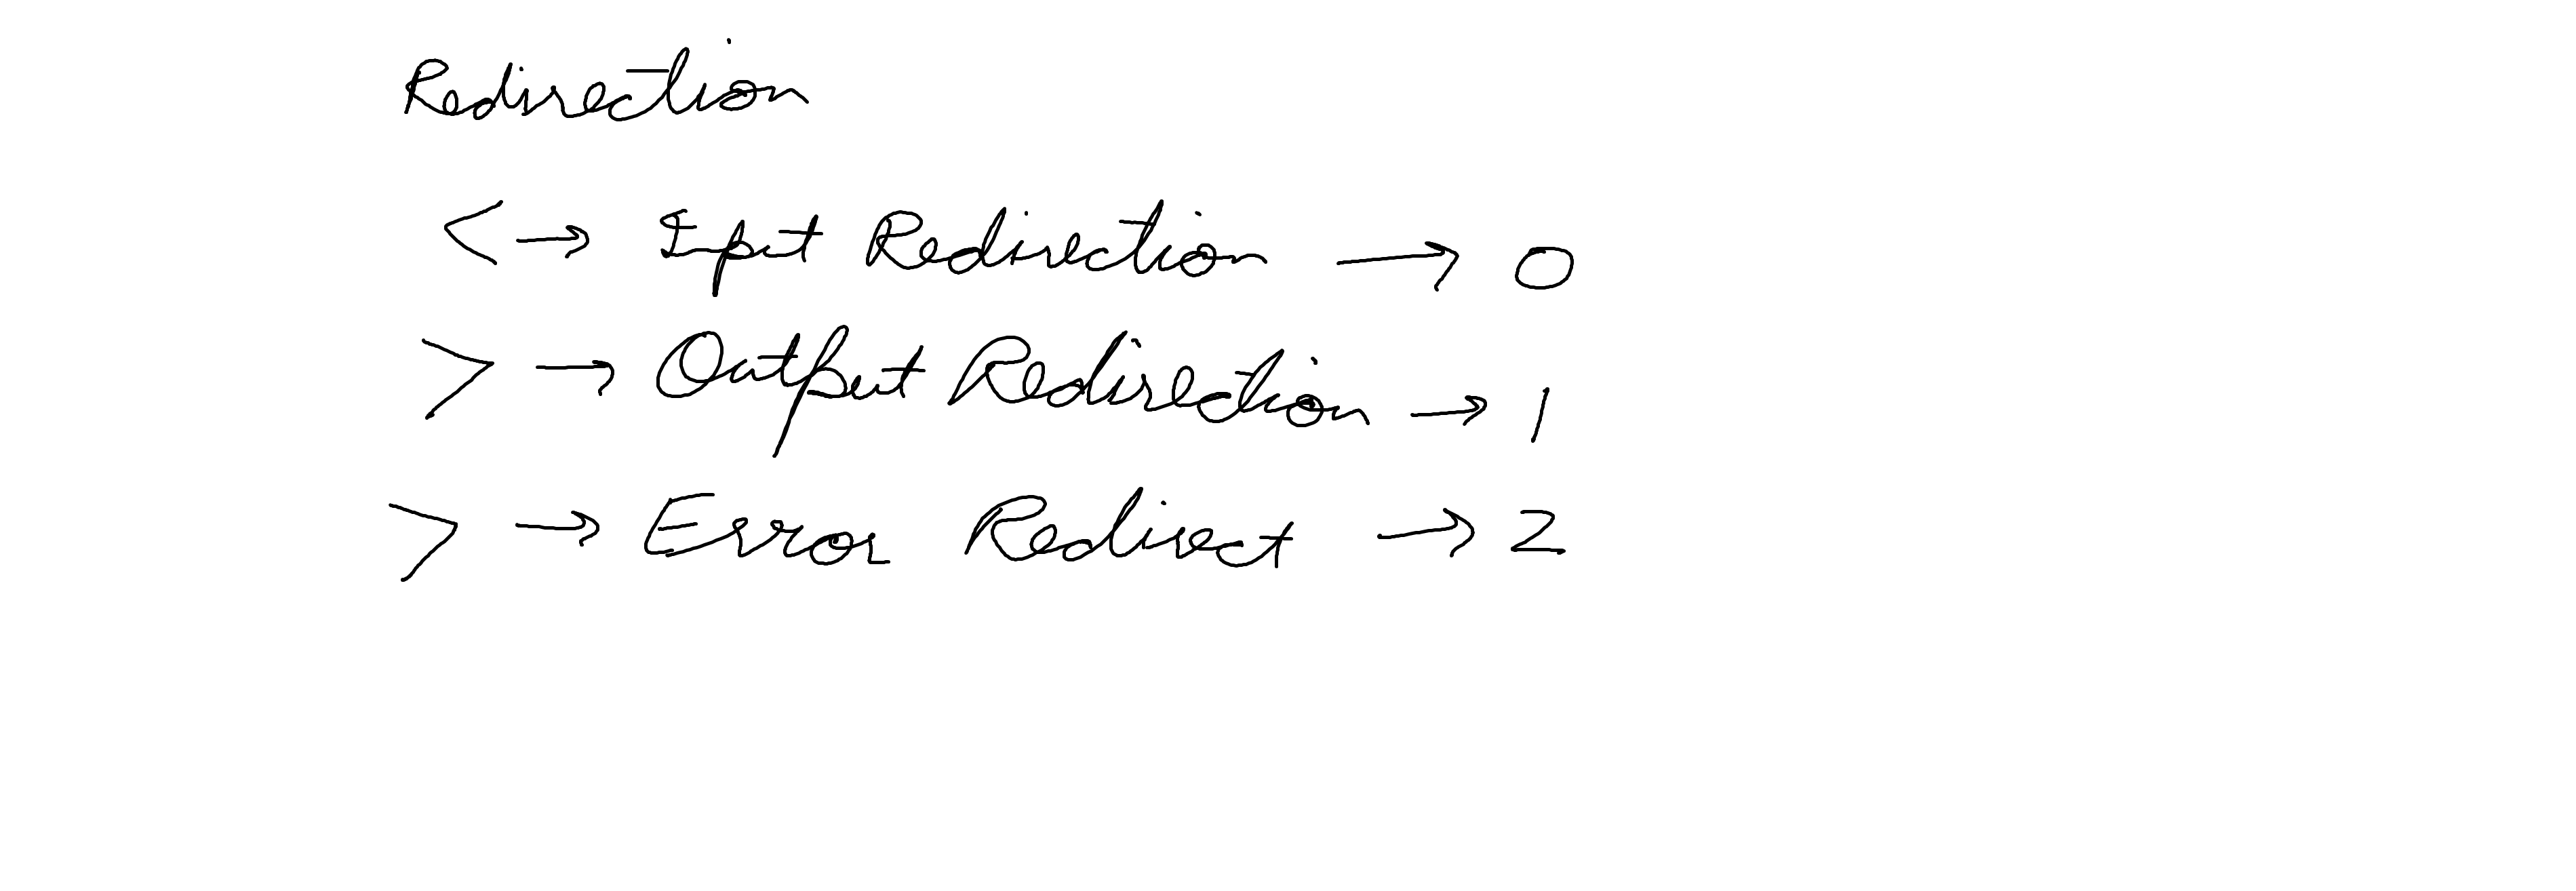 Redirection
< → Input Redirection → 0
> → Output Redirection → 1
> → Error Redirect → 2